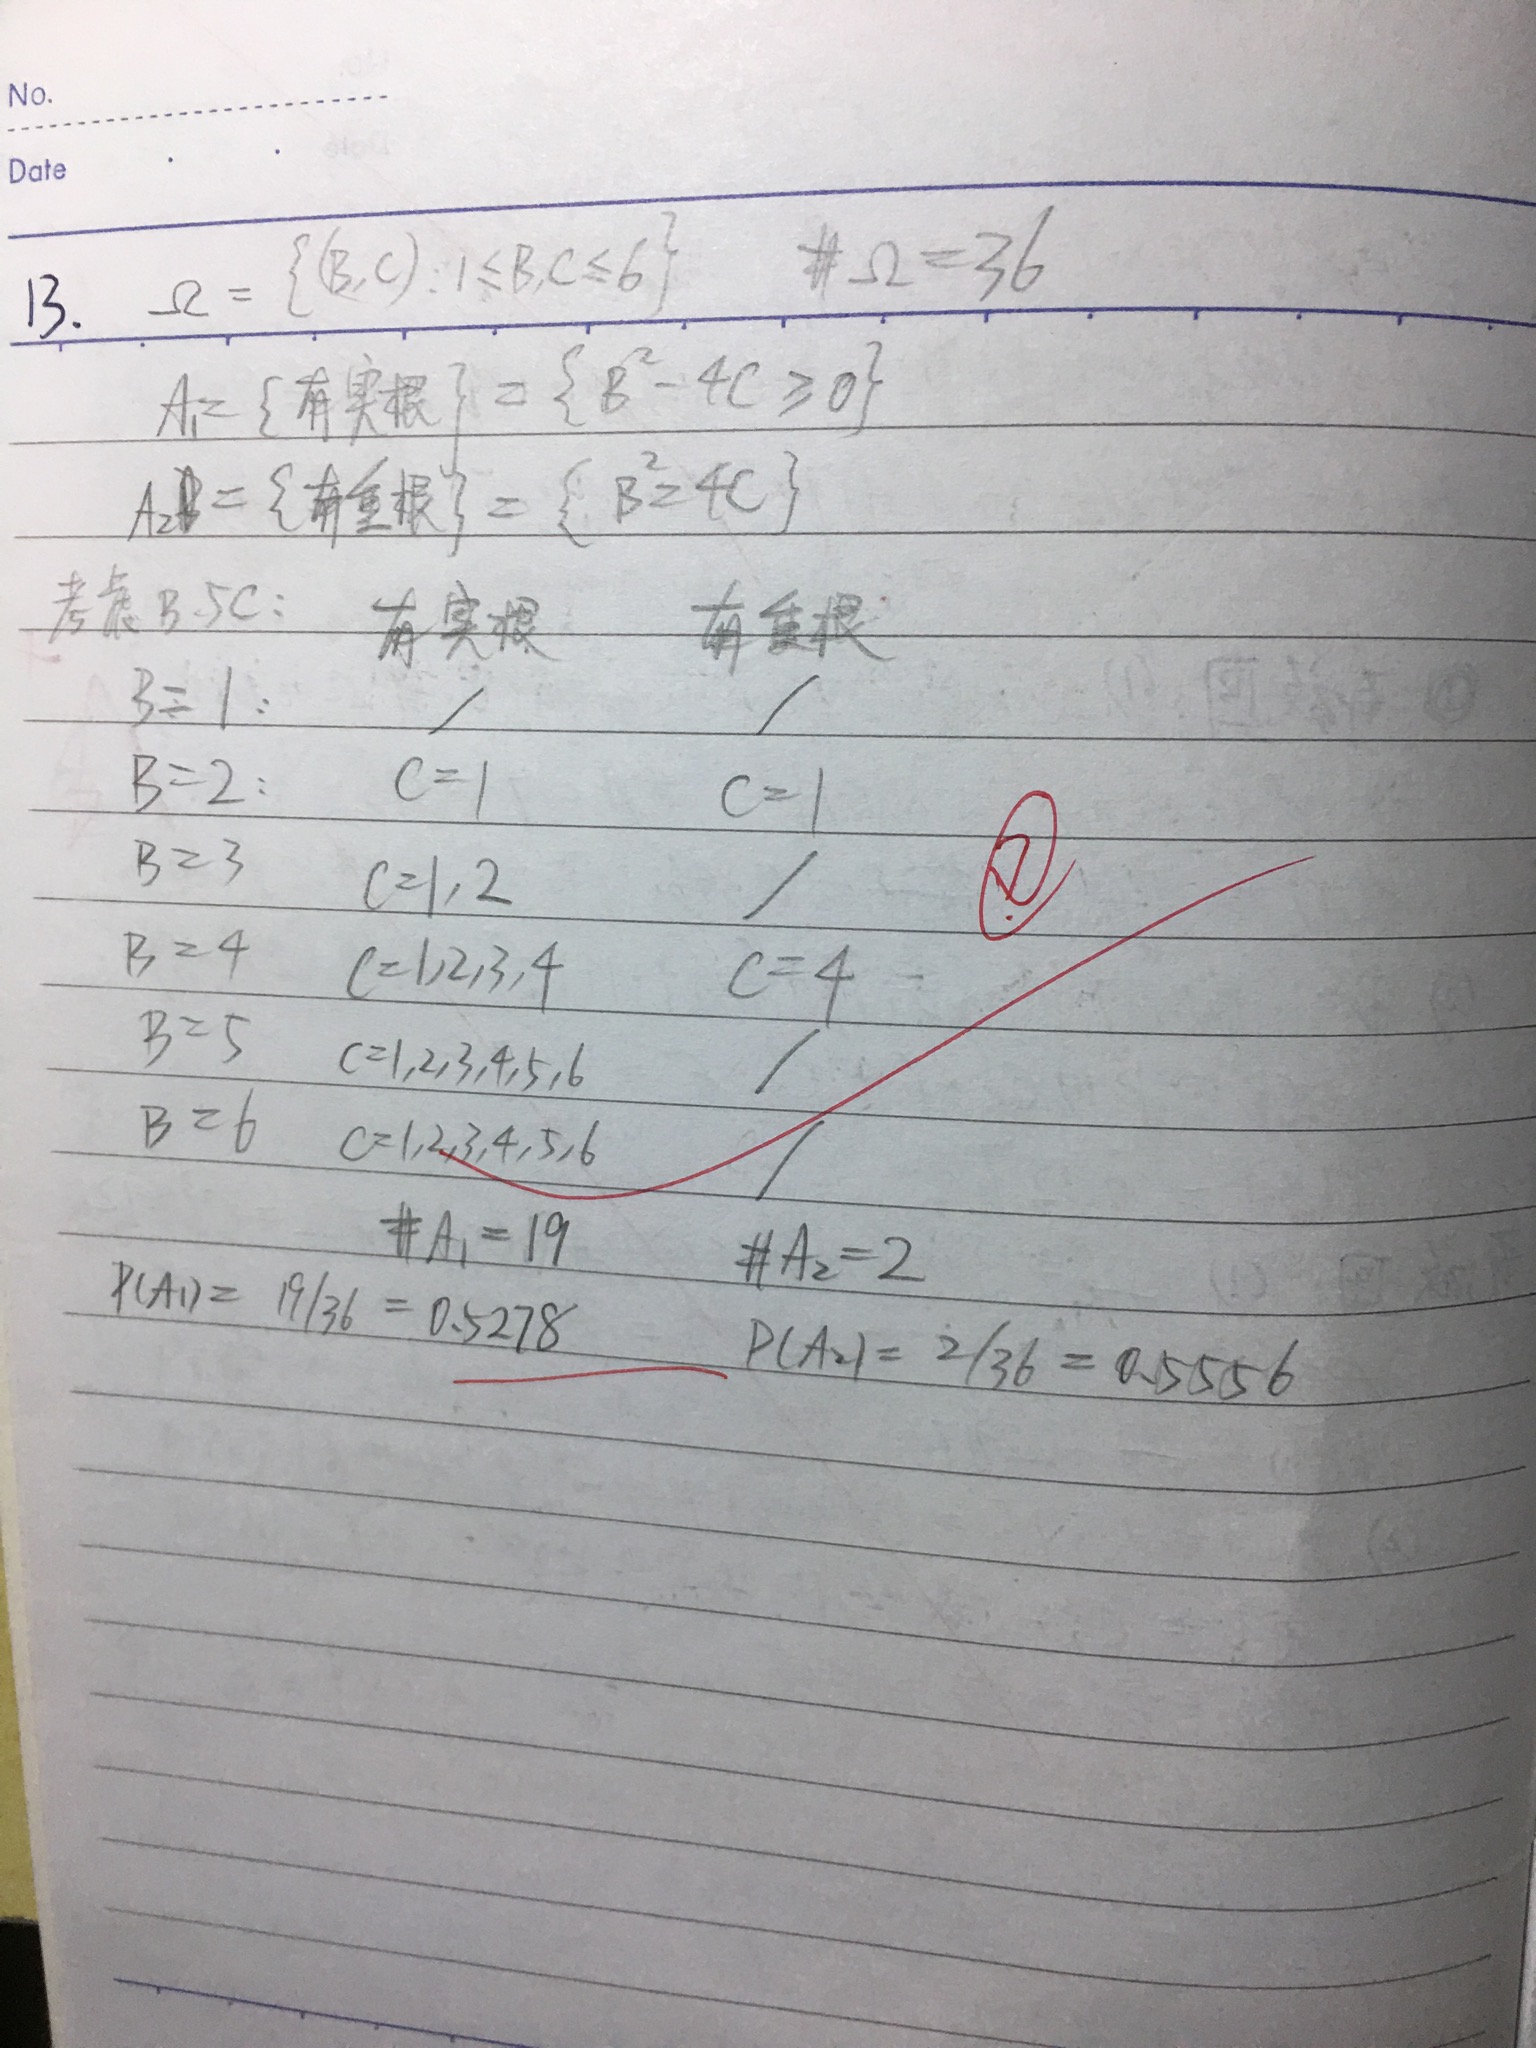 No.
Date
13. Ω = {(B,C): 1≤B,C≤6} #Ω=36
A₁= {有实根} = {B²-4C≥0}
A₂ = {有重根} = {B²=4C}
考虑B与C: 有实根 有重根
B=1: / /
B=2: C=1 C=1
B=3 C=1,2 /
B=4 C=1,2,3,4 C=4
B=5 C=1,2,3,4,5,6 /
B=6 C=1,2,3,4,5,6 /
#A₁=19 #A₂=2
P(A₁)= 19/36 = 0.5278 P(A₂)= 2/36 = 0.5556